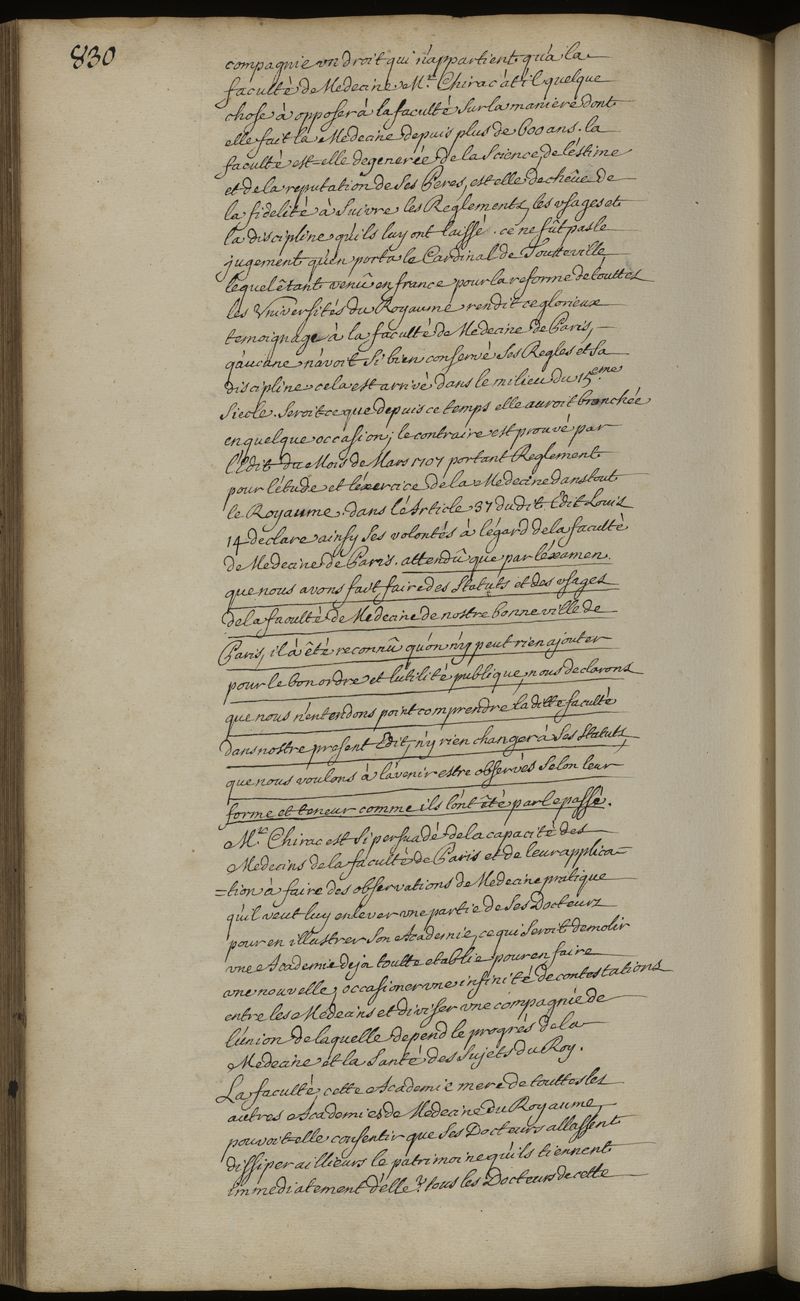 830
compagnie un droit qui n'appartient qu'a la
faculté de Medecine. Mr. Chirac at'il quelque
chose à opposer à la faculté sur la maniere dont
elle fait la Medecine depuis plus de 600 ans. la
faculté est-elle degenerée de la Science, de léstime
et de la reputation de ses Peres, est elle dechêue de
la fidelité à Suivre les Reglements, les usages et
la discipline qu'ils luy ont laissé. ce ne fût pas le
jugement qu'en porta le Cardinal de Toutteville
lequel êtant venû en france pour la reforme de touttes
les Universités du Royaume rendit ce glorieux
temoignage à la faculté de Medecine de Paris,
qu'aucune n'avoit Si bien conservé Ses Regles et Sa
discipline. cela est arrivé dans le milieu du 15eme
Siecle. Seroit ce que depuis ce temps elle auroit bronchée
en quelque occasion; le contraire est prouvé par
l'Edit du Mois de Mars 1707 portant Reglement
pour l'étude et léxercice de la Medecine dans tout
le Royaume. dans lé Article 37 du dit Edit Louis
14 declare ainsy Ses volontés à légard de la faculté
de Medecine de Paris. attendû que par léxamen
que nous avons fait faire des Statuts et des usages
de la faculté de Medecine de nostre bonne ville de
Paris, il à êté reconnû qu'on n'y peut rien ajouter
pour le bon ordre et lútilité publique, nous declarons
que nous n'entendons point comprendre la ditte faculté
dans nostre present Edit, n'y rien changer à Ses Statuts,
que nous voulons à lávenir estre observés Selon leur
forme et teneur comme ils lónt êté par le passé.
Mr. Chirac est Si persuadé de la capacité des
Medecins de la faculté de Paris et de leur applica=
=tion à faire des observations de Medecine pratique
qu'il veut luy enlever une partie de Ses Docteurs
pour en illustrer Son Academie, ce qui Seroit demolir
une Academie deja toutte etablie pour en faire
une nouvelle, occasioner une infinité de contestations
entre les Medecins et diviser une compagnie de
lúnion de laquelle depend le progrés de la
Medecine et la Santé des Sujets du Roy.
La faculté, cette Academie mere de touttes les
autres Academies de Medecine du Royaume,
pouvoit elle consentir que Ses Docteurs allassent
dissiper aillieurs le patrimoine qu'ils tiennent
immediatement d'elle? tous les Docteurs de cette